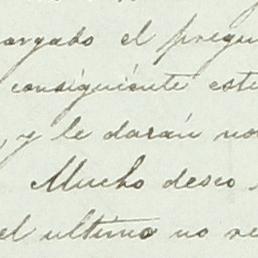 cargado el pregu
consiguiente este
, y le darán no
Mucho deseo
el ultimo no re